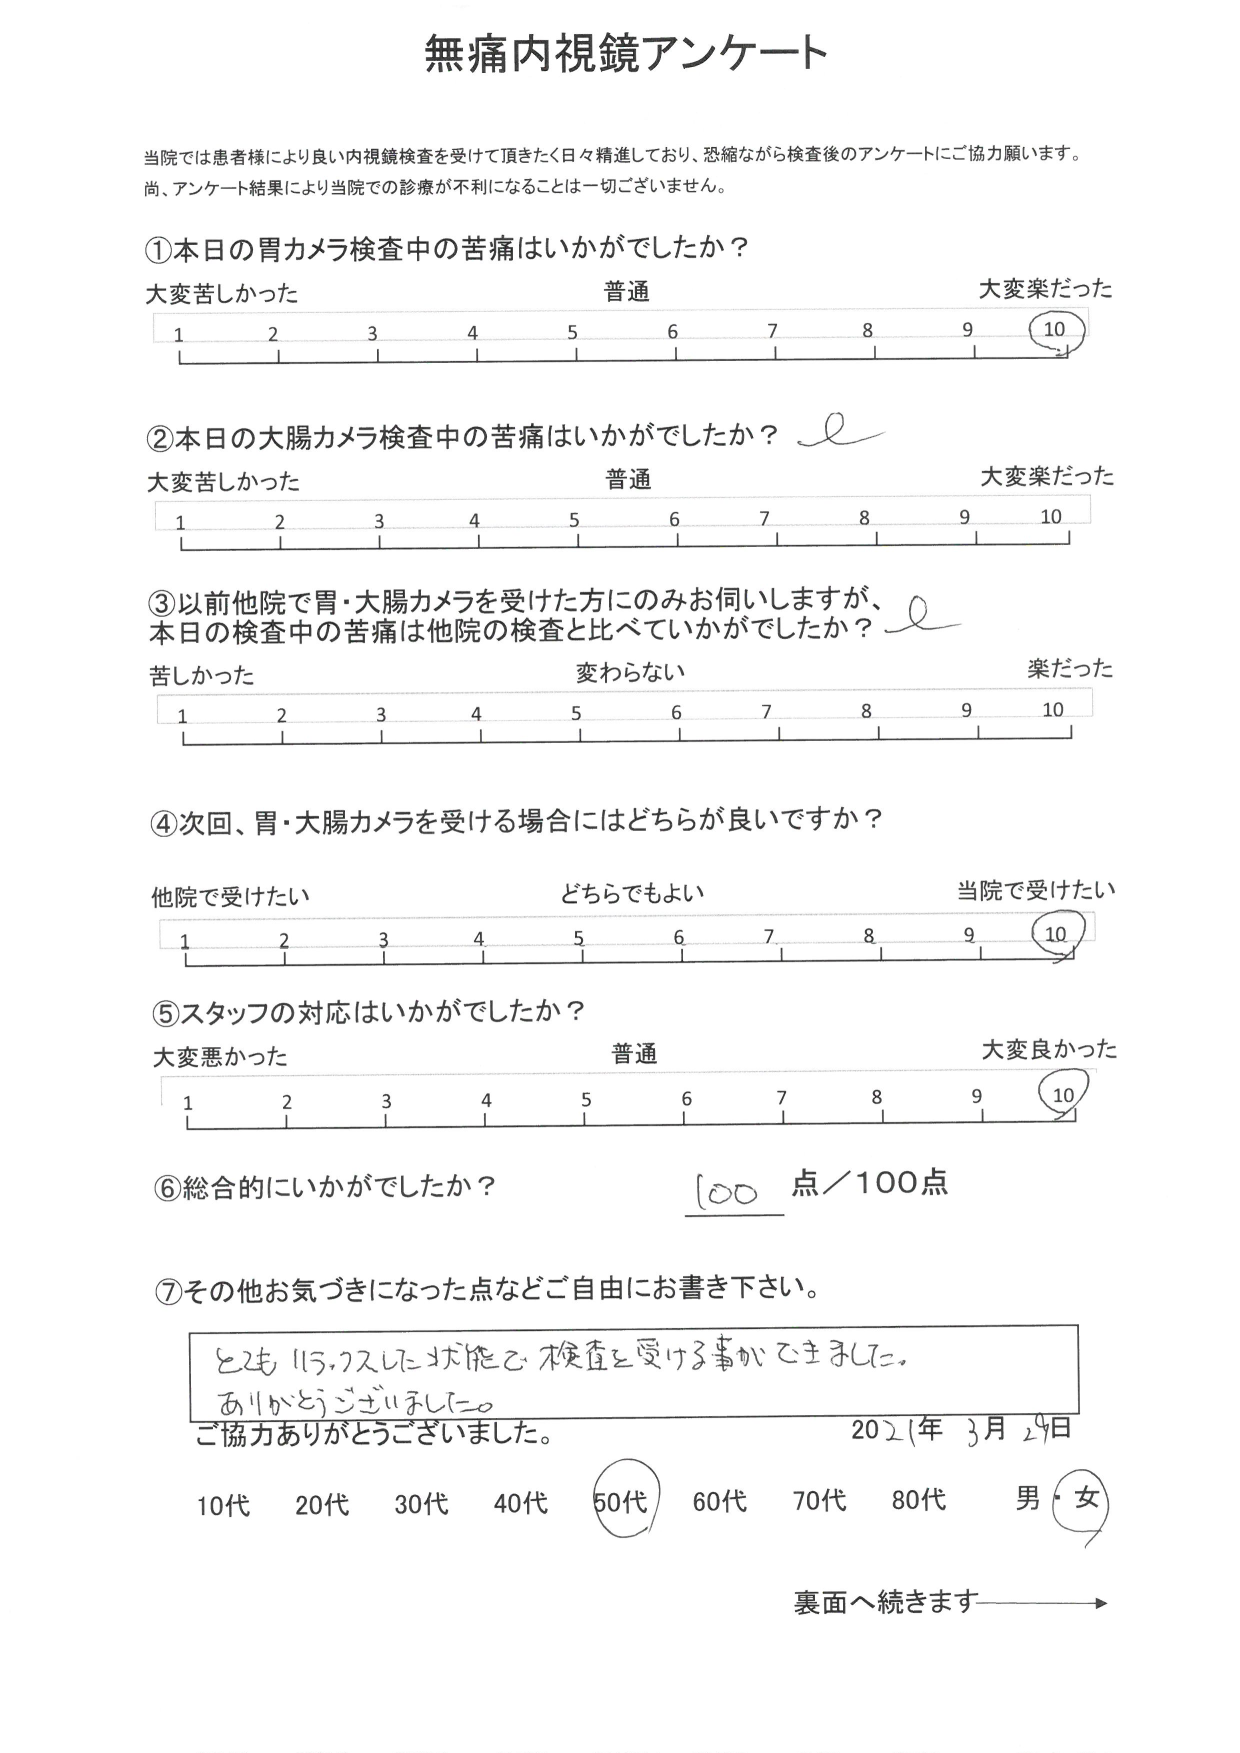 無痛内視鏡アンケート
当院では患者様により良い内視鏡検査を受けて頂きたく日々精進しており、恐縮ながら検査後のアンケートにご協力願います。
尚、アンケート結果により当院での診療が不利になることは一切ございません。
①本日の胃カメラ検査中の苦痛はいかがでしたか？
大変苦しかった 普通 大変楽だった
1 2 3 4 5 6 7 8 9 10
②本日の大腸カメラ検査中の苦痛はいかがでしたか？
大変苦しかった 普通 大変楽だった
1 2 3 4 5 6 7 8 9 10
③以前他院で胃・大腸カメラを受けた方にのみお伺いしますが、
本日の検査中の苦痛は他院の検査と比べていかがでしたか？
苦しかった 変わらない 楽だった
1 2 3 4 5 6 7 8 9 10
④次回、胃・大腸カメラを受ける場合にはどちらが良いですか？
他院で受けたい どちらでもよい 当院で受けたい
1 2 3 4 5 6 7 8 9 10
⑤スタッフの対応はいかがでしたか？
大変悪かった 普通 大変良かった
1 2 3 4 5 6 7 8 9 10
⑥総合的にいかがでしたか？ 100 点／100点
⑦その他お気づきになった点などご自由にお書き下さい。
とても リラックスした状態で 検査を受ける事が できました。
ありがとうございました。
ご協力ありがとうございました。 2021年 3月 29日
10代 20代 30代 40代 50代 60代 70代 80代 男・女
裏面へ続きます